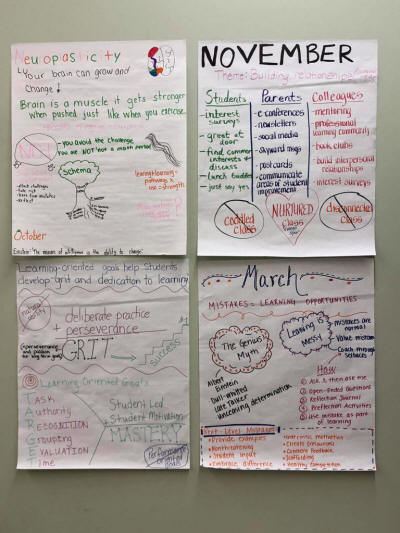 Neuroplasticity
Your brain can grow and
change!
Brain is a muscle it gets stronger
when pushed just like when you exercise.
- you avoid the challenge
You are NOT "not a math person"
Schema
learning + learning =
pathways +
use = strength
October
Einstein: The measure of intelligence is the ability to change.
NOVEMBER
Theme: Building relationships
Students
- interest surveys
- great at door
- find common interests + discuss
- lunch buddies
- just say yes
Parents
- e-conferences
- newsletters
- social media
- skyward msgs
- postcards
- communicate areas of student improvement
Colleagues
- mentoring
- professional learning community
- book clubs
- build interpersonal relationships
- interest surveys
Coddled Class
NURTURED
Class
disconnected Class
Learning-oriented goals help students
develop grit and dedication to learning
natural ability
deliberate practice
+ perseverance
GRIT
SUCCESS
Learning Oriented Goals
TASK
Authority
RECOGNITION
Grouping
EVALUATION
Time
Student Led
Student Motivation
MASTERY
Performance Oriented Goals
March
MISTAKES = LEARNING OPPORTUNITIES
The Genius Myth
Albert
Einstein
Dull-witted
Late Talker
Unceasing determination
Learning is Messy
Mistakes are normal
Value mistakes
Coach through setbacks
How
① Ask 3 then me
② Open-Ended Questions
③ Reflection Journal
④ Reflection Activities
⑤ Use mistake as part of learning
Provide examples
Nonthreatening
Student input
Embrace difference
Intrinsic motivation
Create
Constant feedback
Scaffolding
Healthy competition